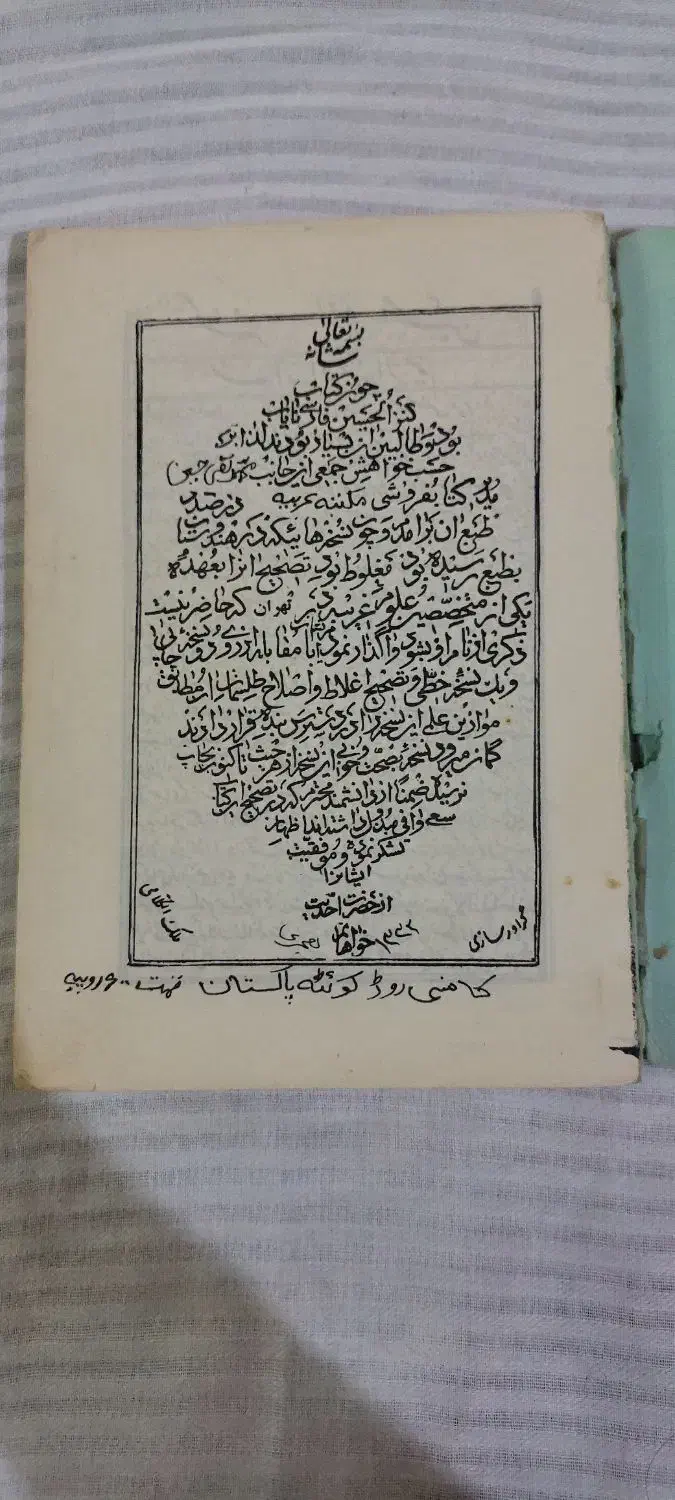 بسمه تعالی
شانه
چون کتاب
کنز الحسین فارسی نایاب
بود و طالبین آن بسیار بودند لذا
حسب خواهش جمعی از جانب محمد تقی
مدیر کتابفروشی مکتبه عربیه در صدد
طبع آن برآمد و چون نسخه هائیکه در هندوستان
بطبع رسیده بود مغلوط بود تصحیح آنرا بعهده
یکی از متخصصین علوم غریبه در تهران که حاضر نیست
ذکری از نام او بشود واگذار نمود با مقابله از روی دو نسخه چاپی
و یک نسخه خطی و تصحیح اغلاط و اصلاح طلسمات مطابق
موازین علمی این نسخه را در دسترس بنده قرار دادند
گمان میرود نسخه بصحت و خوبی این نسخه از هر حیث تا کنون بچاپ
نرسیده ضمناً از دانشمند محترم که در تصحیح این کتاب
سعی وافی مبذول داشته اند اظهار
تشکر نموده و موفقیت
ایشانرا
از حضرت احدیت
خواهانم
کانسی روڈ کوئٹه پاکستان قیمت روپیه